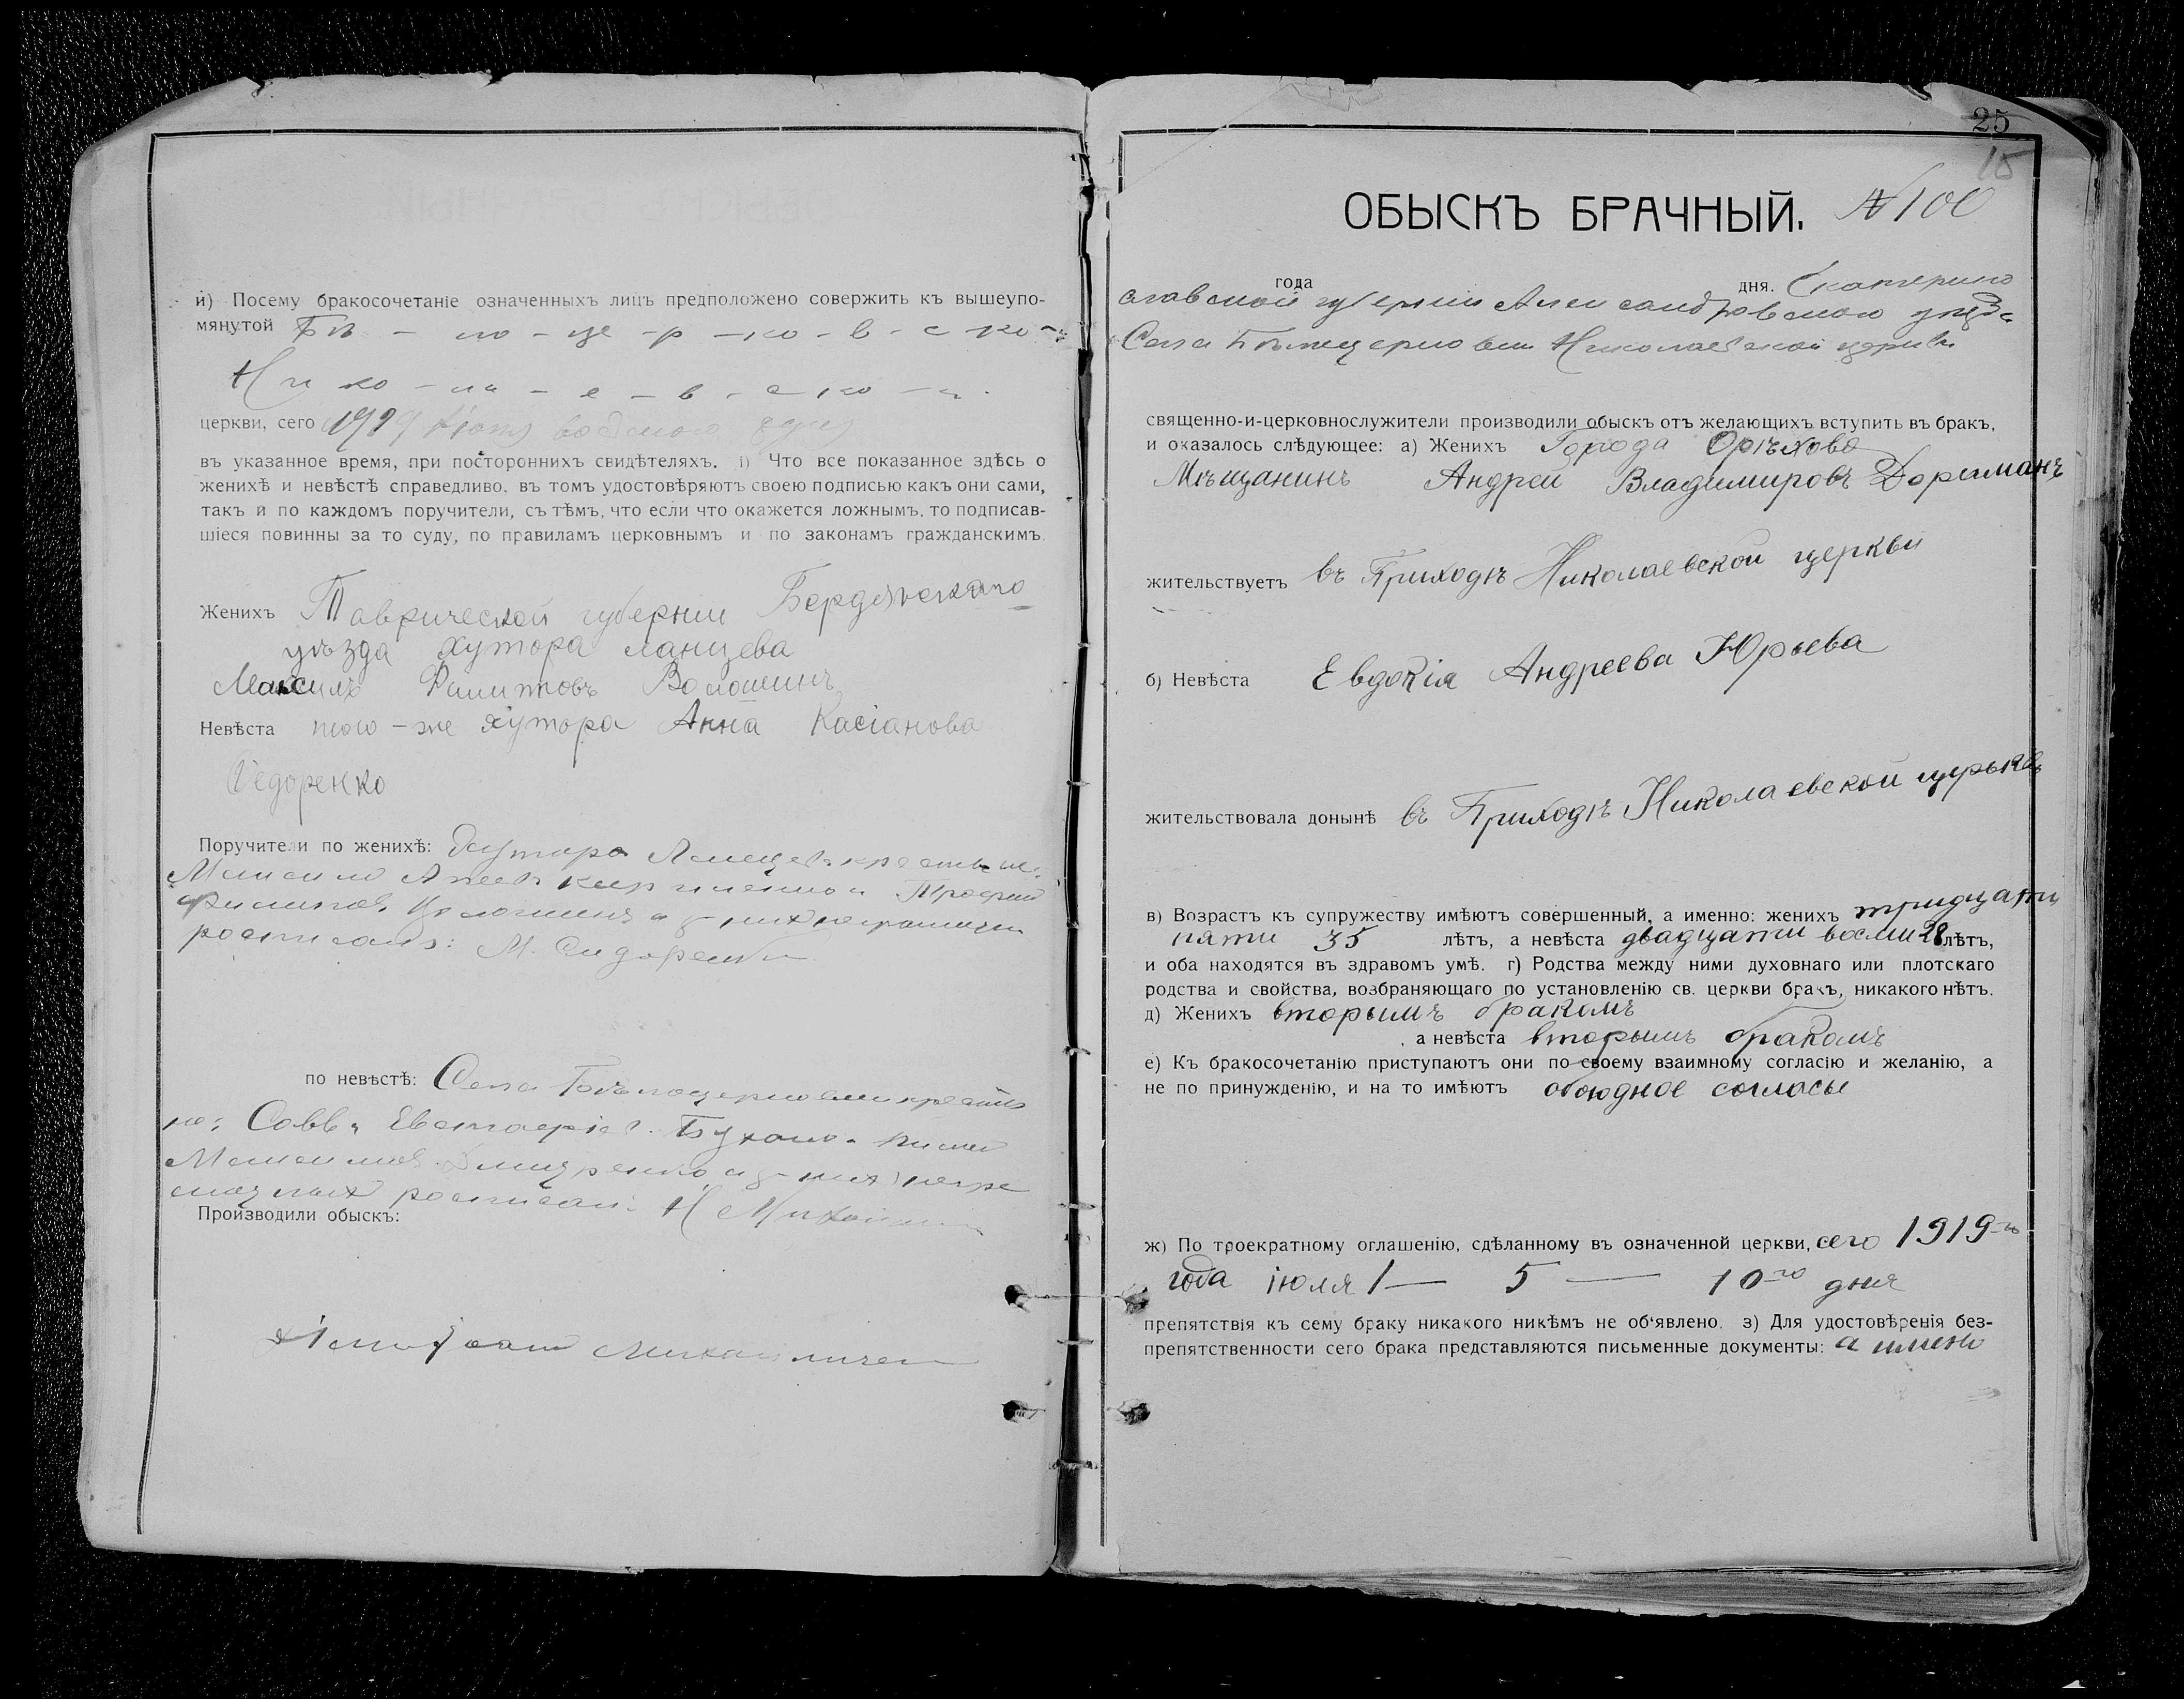 и) Посему бракосочетаніе означенныхъ лицъ предположено совержить къ вышеупо-
мянутой Бѣ - ло - це - р - ко - в - с ко -
Ни ко - ла - е - в - с ко - й
церкви, сего 1919
въ указанное время, при постороннихъ свидѣтеляхъ. і) Что все показанное здѣсь о
женихѣ и невѣстѣ справедливо, въ томъ удостовѣряютъ своею подписью какъ они сами,
такъ и по каждомъ поручители, съ тѣмъ, что если что окажется ложнымъ, то подписав-
шіеся повинны за то суду, по правиламъ церковнымъ и по законамъ гражданскимъ.
Женихъ Таврической губерніи Бердянскаго
уѣзда хутора ланцева
Максимъ Филиповъ Волошинъ
Невѣста того - же хутора Анна Касіанова
Федоренко
Поручители по женихѣ: Хутора
Трофим
Филипов Волошинъ а
росписалъ: М. Сидоренко
по невѣстѣ: Села Бѣлоцерковки крестьян
Савва Евстафіев
Максимов
росписалъ Н
Производили обыскъ:
25
15
ОБЫСКЪ БРАЧНЫЙ. № 100
года дня. Екатерино
славской губерніи Александровскаго уѣзд
Села Бѣлоцерковки Николаевской церкви
священно-и-церковнослужители производили обыскъ отъ желающихъ вступить въ брак,
и оказалось слѣдующее: а) Женихъ Города Орѣхова
Мѣщанинъ Андрей Владимировъ Дориманъ
жительствуетъ въ Приходѣ Николаевской церкви
б) Невѣста Евдокія Андреева Юрьева
жительствовала донынѣ въ Приходѣ Николаевской церькв
в) Возрастъ къ супружеству имѣютъ совершенный, а именно: женихъ тридцати
пяти 35 лѣтъ, а невѣста двадцати восми 28 лѣтъ,
и оба находятся въ здравомъ умѣ. г) Родства между ними духовнаго или плотскаго
родства и свойства, возбраняющаго по установленію св. церкви бракъ, никакого нѣтъ.
д) Женихъ вторымъ бракомъ
а невѣста вторымъ бракомъ
е) Къ бракосочетанію приступаютъ они по своему взаимному согласію и желанію, а
не по принужденію, и на то имѣютъ обоюдное согласье
ж) По троекратному оглашенію, сдѣланному въ означенной церкви, сего 1919-го
года іюля 1 — 5 — 10го дня
препятствія къ сему браку никакого никѣмъ не объявлено. з) Для удостовѣренія без-
препятственности сего брака представляются письменные документы: а имено